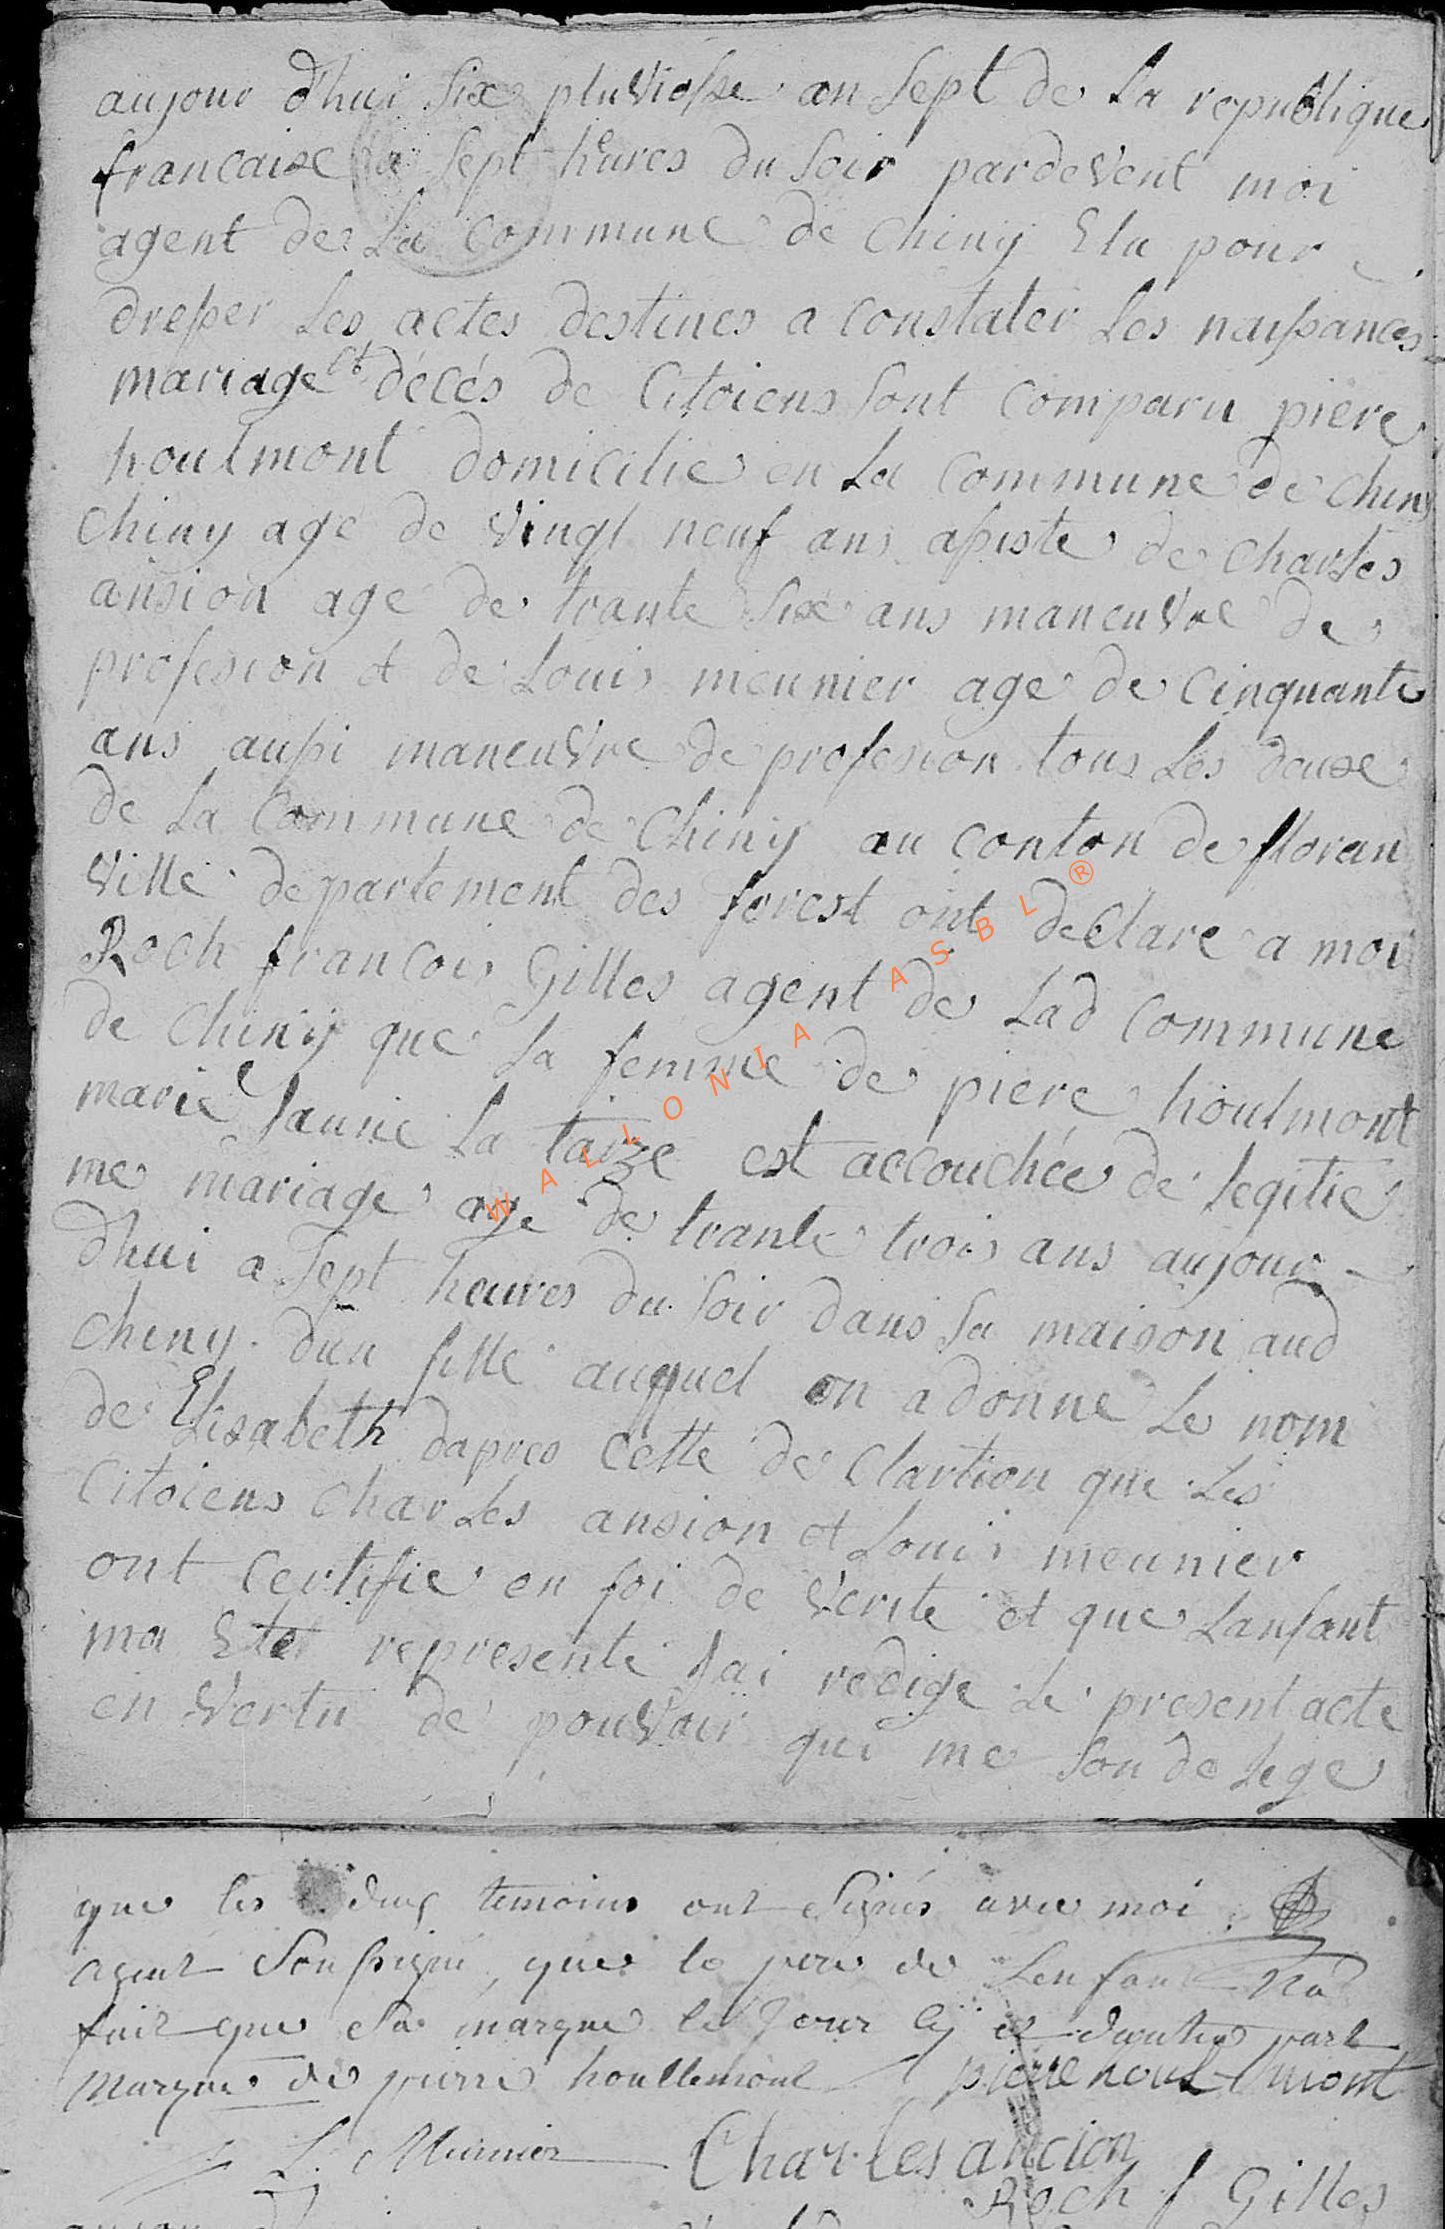 aujour d'hui six pluviosse an sept de la republique
francaise a sept hures du soir pardevent moi
agent de la commune de chiny Elu pour
dresser les actes destines a constater les naissances
mariage et décés de Citoiens sont comparu piere
houlmont domicilie en la commune de chiny
chiny age de vingt neuf ans assiste de charles
ansion age de trante six ans maneuvre de
profesion et de Louis meunier age de cinquante
ans aussi maneuvre de profesion tous les deuxe
de la commune de Chiny au conton de floran
ville departement des forest ont declare a moi
Roch francois Gilles agent de lad commune
de chiny que la femme de piere houlmont
marie Janne la tarze est accouchée de legitie
me mariage age de trante trois ans aujour
dhui a sept heures du soir dans sa maison aud
cheny dun fille auquel on a donne le nom
de Elisabeth dapres cette de clartion que les
Citoiens charles ansion et Louis meunier
ont certifie en foi de verite et que lanfant
ma Ete represente Jai redige le present acte
en vertu de pouvoir qui me son delege
que les deux temoins ont signés avec moi
agent soussigné, que le pere de Lenfant Na
fait que sa marque le Jour cy et dautre part
marque de pierre houllemont pierre houlmont
L. Meunier Charles ancion
Roch f Gilles
WALLONIA ASBL ®